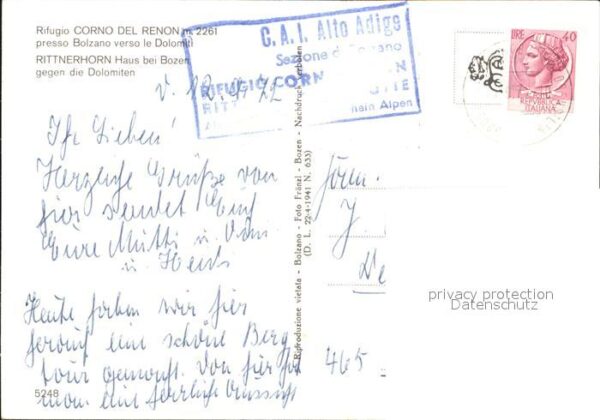 Rifugio CORNO DEL RENON m. 2261
presso Bolzano verso le Dolomiti
RITTNERHORN Haus bei Bozen
gegen die Dolomiten
C. A. I. Alto Adige
Sezione di Bolzano
RIFUGIO CORN
RITT
Alpen
LIRE 40
REPVBBLICA
ITALIANA
Ihr Lieben!
Herzliche Grüße von
hier sendet Euch
Eure Mutti u. Vati
u. Heidi
Heute haben wir hier
herauf eine schöne Berg
tour gemacht. Von hier hat
man eine herrliche Aussicht
5248
Riproduzione vietata - Bolzano - Foto Fränzl - Bozen - Nachdruck verboten
(D. L. 22-4-1941 N. 633)
Fam.
J.
465
privacy protection
Datenschutz